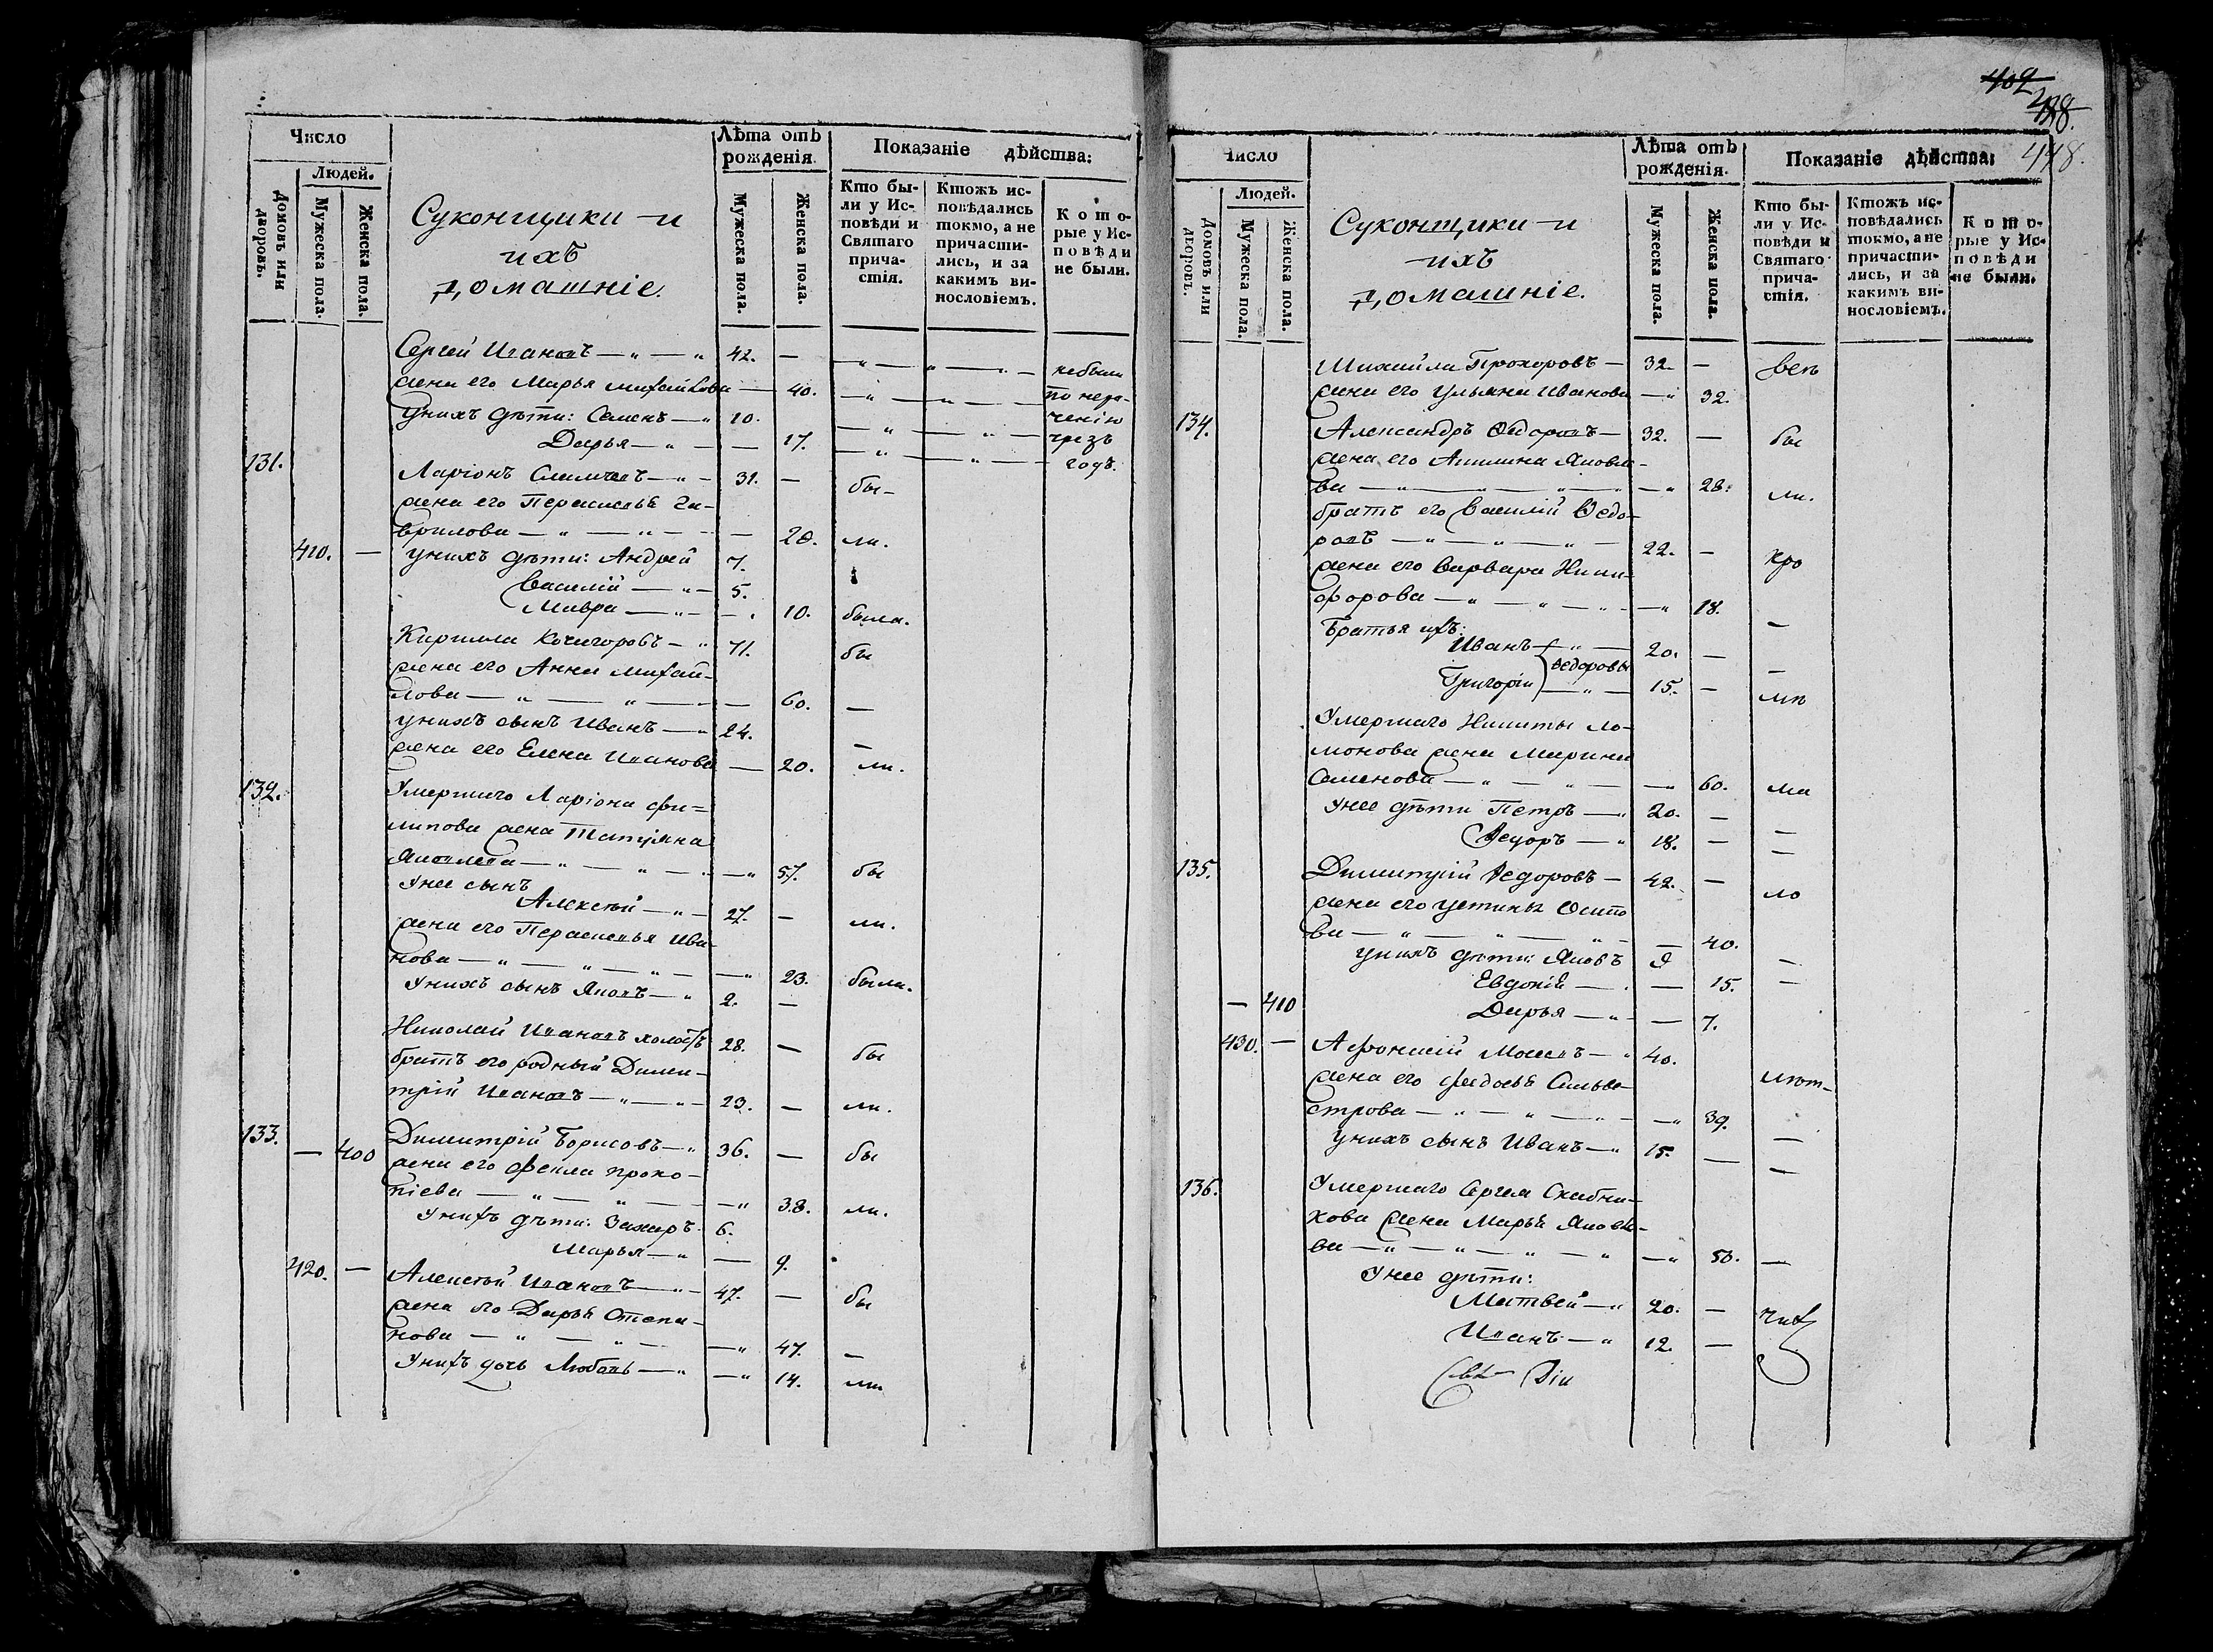 Число
Людей.
Домовъ или дворовъ.
Мужеска пола.
Женска пола.
Суконщики и
ихъ
домашніе.
Лѣта отъ
рожденія.
Мужеска пола.
Женска пола.
Показаніе дѣйства:
Кто бы-
ли у Ис-
повѣди и
Святаго
прича-
стія.
Ктожъ ис-
повѣдались
токмо, а не
причасти-
лись, и за
какимъ ви-
нословіемъ.
Кото-
рые у Ис-
повѣди
не были.
Сергей Ивановъ — „ — „ 42. — небыли
жена его Марья Михайлова — 40. по нера-
у нихъ дѣти: Семенъ — „ 10. ченію
Дарья — „ — — 17. чрезъ
годъ.
131. Ларіонъ — „ — 31. — бы-
жена его Парасковья Га-
врилова — „ — „ — — 28. ли.
410. — у нихъ дѣти: Андрей 7.
Василій — „ — 5.
Мавра — „ — — 10. была.
Кирилла — „ 71. бы
жена его Анна Михай-
лова — „ — „ — — 60. —
у нихъ сынъ Иванъ — „ 24. —
жена его Елена Иванова — 20. ли.
132. Умершаго Ларіона Фи=
липова жена Татіяна
Яковлева — „ — „ — „ — „ 57. бы
У нее сынъ
Алексѣй — „ — 27. — ли.
жена его Парасковья Ива-
нова — „ — „ — „ — — „ 23. были.
У нихъ сынъ Яковъ — „ 2. —
Николай Ивановъ холостъ 28. — бы
братъ его родный Дими-
трій Ивановъ — „ — „ — 23. — ли.
133. — 400 Димитрій Борисовъ — „ 36. — бы
жена его Фекла Проко-
піева — „ — „ — — „ 38. ли.
У нихъ дѣти: Захаръ 6.
Марья — „ — 9.
420. — Алексѣй Ивановъ — „ — 47. — бы
жена его Дарья Степа-
нова — „ — „ — — „ 47. —
У нихъ дочь Любовь — „ — „ 14. ли
402
448.
Число
Людей.
Домовъ или дворовъ.
Мужеска пола.
Женска пола.
Суконщики и
ихъ
домашніе.
Лѣта отъ
рожденія.
Мужеска пола.
Женска пола.
Показаніе дѣйства:
Кто бы-
ли у Ис-
повѣди и
Святаго
прича-
стія.
Ктожъ ис-
повѣдались
токмо, а не
причасти-
лись, и за
какимъ ви-
нословіемъ.
Кото-
рые у Ис-
повѣди
не были.
Михайла Прохоровъ — 32. —
жена его Ульяна Иванова — „ 32.
134. Александръ Федоровъ — 32. — бы
жена его Акилина Яковле-
ва — „ — „ — „ — „ — „ 28. ли.
братъ его Василій Федо-
ровъ — „ — „ — „ — 22. —
жена его Варвара Ники-
форова — „ — „ — „ — — „ 18. —
Братья ихъ:
Иванъ — „ — 20. — —
Федоровы
Григорій — „ — 15. —
Умершаго Никиты
жена Марина
Семенова — „ — „ — — „ 60.
У нее дѣти Петръ — „ 20. — —
Федоръ — „ 18. — —
135. Димитрій Федоровъ — 42. —
жена его Устинья Осипо
ва — „ — „ — „ — — 40.
у нихъ дѣти: Яковъ —
Евдокія — — 15. —
— 410 Дарья — „ — — 7.
430. — Афонасій — „ 40.
жена его Федосья Сильве-
строва — „ — „ — „ — — „ 39.
У нихъ сынъ Иванъ — „ 15. — —
136. Умершаго Сергея
жена Марья Яковле-
ва — „ — „ — „ — „ — „ 50. —
У нее дѣти:
Матвей — „ 20. —
Иванъ — „ 12. —